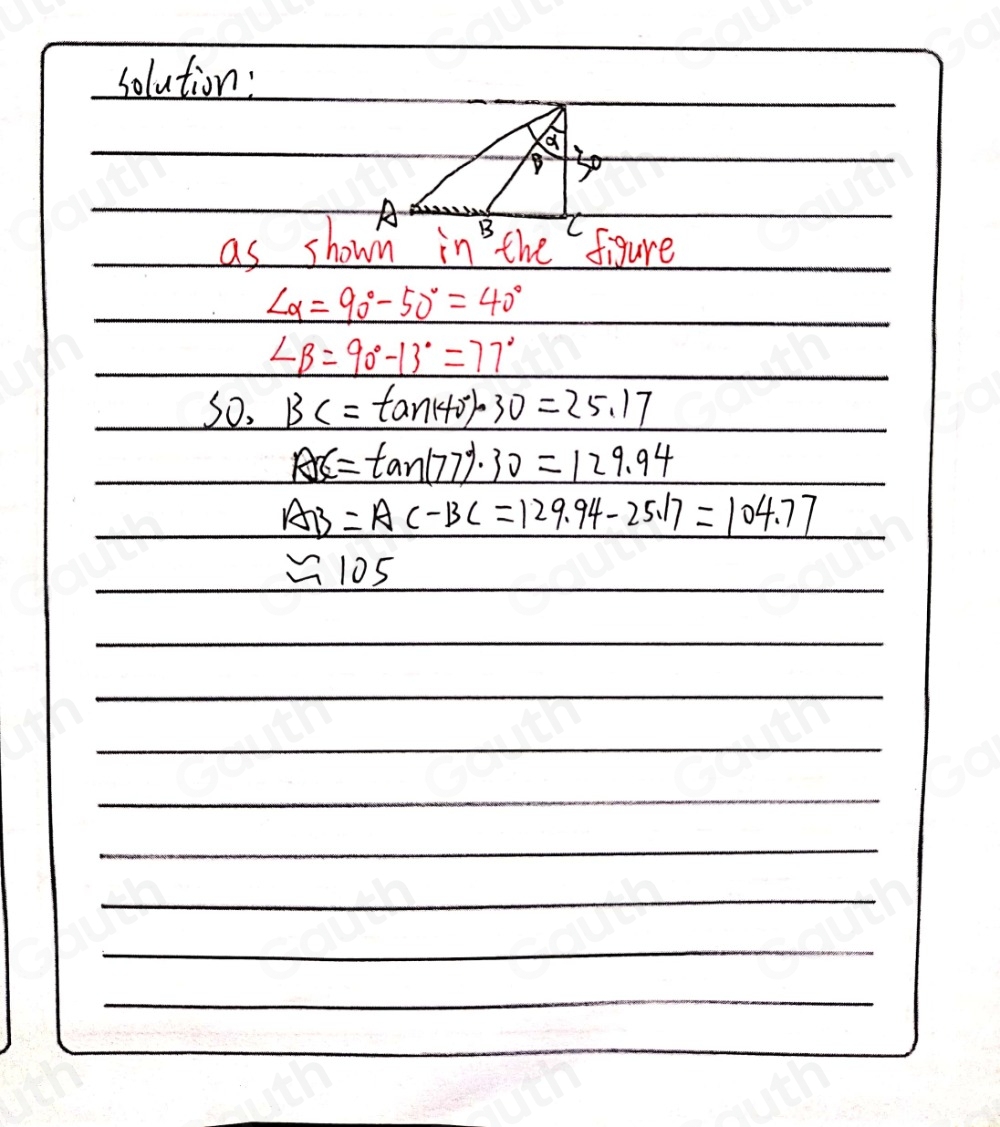 Solution:
α
β
30
A
B
C
as shown in the figure
∠α = 90° - 50° = 40°
∠β = 90° - 13° = 77°
SO, BC = tan(40°)·30 = 25.17
AC = tan(77°)·30 = 129.94
AB = AC - BC = 129.94 - 25.17 = 104.77
≈ 105
Gauth